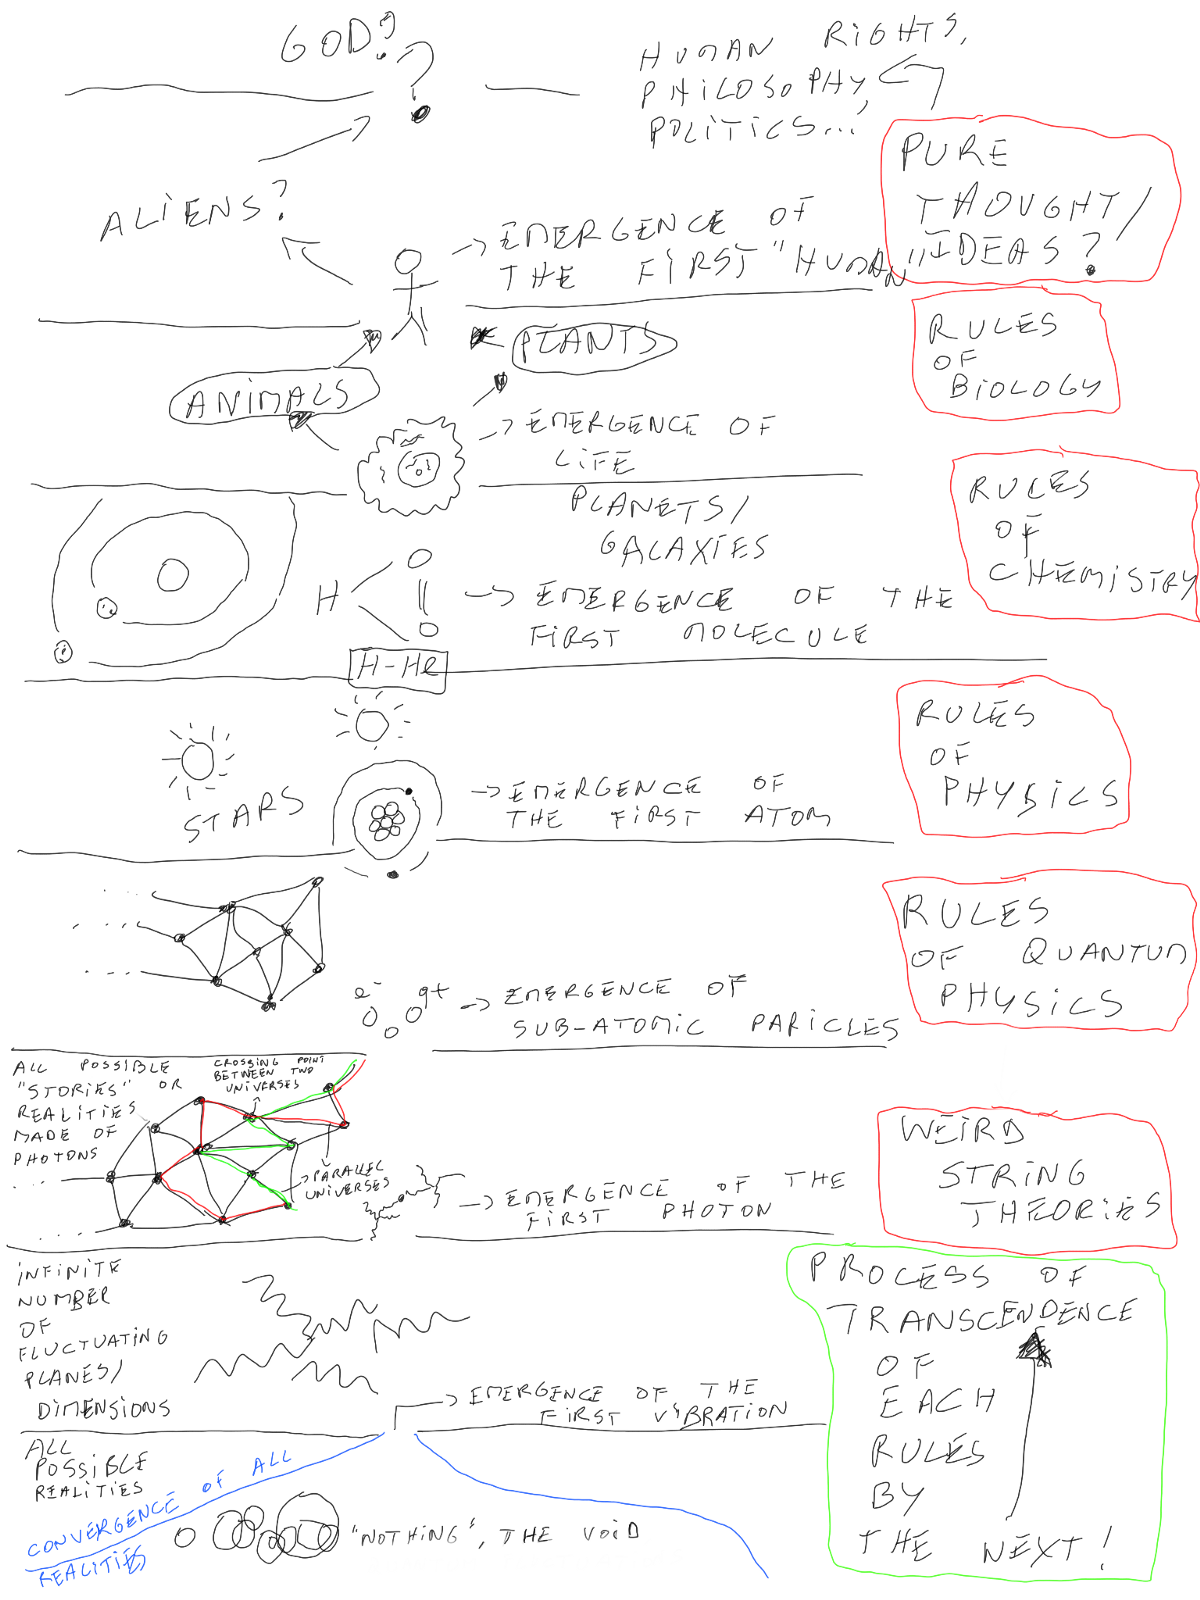 GOD?
?
HUMAN RIGHTS,
PHILOSOPHY,
POLITICS...
PURE
THOUGHT/
IDEAS?
ALIENS?
→ EMERGENCE OF
THE FIRST "HUMAN"
RULES
OF
BIOLOGY
PLANTS
ANIMALS
→ EMERGENCE OF
LIFE
RULES
OF
CHEMISTRY
PLANETS/
GALAXIES
H
→ EMERGENCE OF THE
FIRST MOLECULE
H-He
RULES
OF
PHYSICS
STARS
→ EMERGENCE OF
THE FIRST ATOM
RULES
OF QUANTUM
PHYSICS
e- q+
→ EMERGENCE OF
SUB-ATOMIC PARICLES
ALL POSSIBLE
"STORIES" OR
REALITIES
MADE OF
PHOTONS
CROSSING POINT
BETWEEN TWO
UNIVERSES
PARALLEL
UNIVERSES
→ EMERGENCE OF THE
FIRST PHOTON
WEIRD
STRING
THEORIES
INFINITE
NUMBER
OF
FLUCTUATING
PLANES/
DIMENSIONS
→ EMERGENCE OF THE
FIRST VIBRATION
PROCESS OF
TRANSCENDENCE
OF
EACH
RULES
BY
THE NEXT!
ALL
POSSIBLE
REALITIES
CONVERGENCE OF ALL
REALITIES
"NOTHING", THE VOID